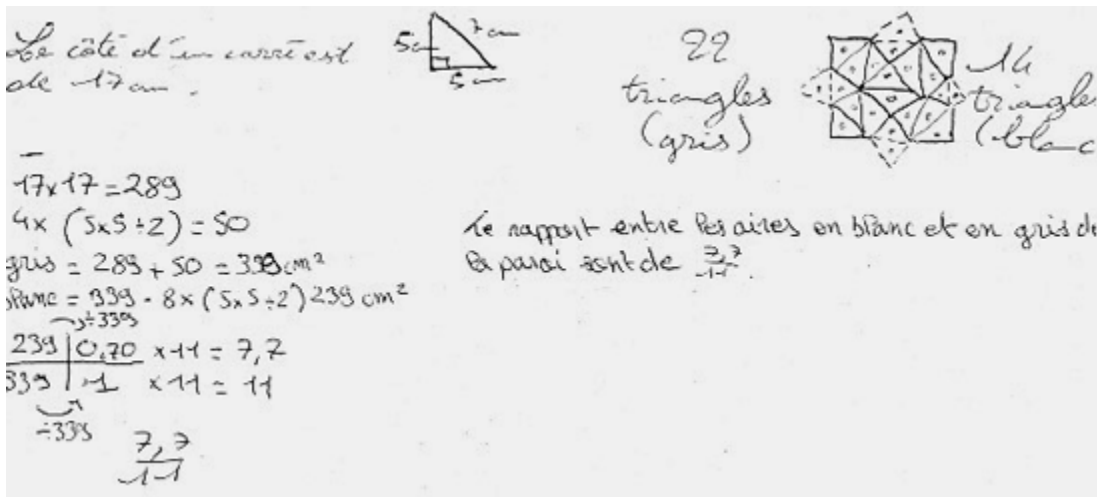 Le côté d'un carré est
de 17 cm.
5cm
7 cm
5 cm
22
triangles
(gris)
14
triangles
(blanc
17x17=289
4x (5x5÷2) = 50
gris = 289 + 50 = 339 cm²
blanc = 339 - 8 x (5x5÷2) 239 cm²
÷339
239 | 0,70 x 11 = 7,7
339 | 1 x 11 = 11
÷339
7,7
11
Le rapport entre les aires en blanc et en gris de
la paroi sont de 7,7/11.